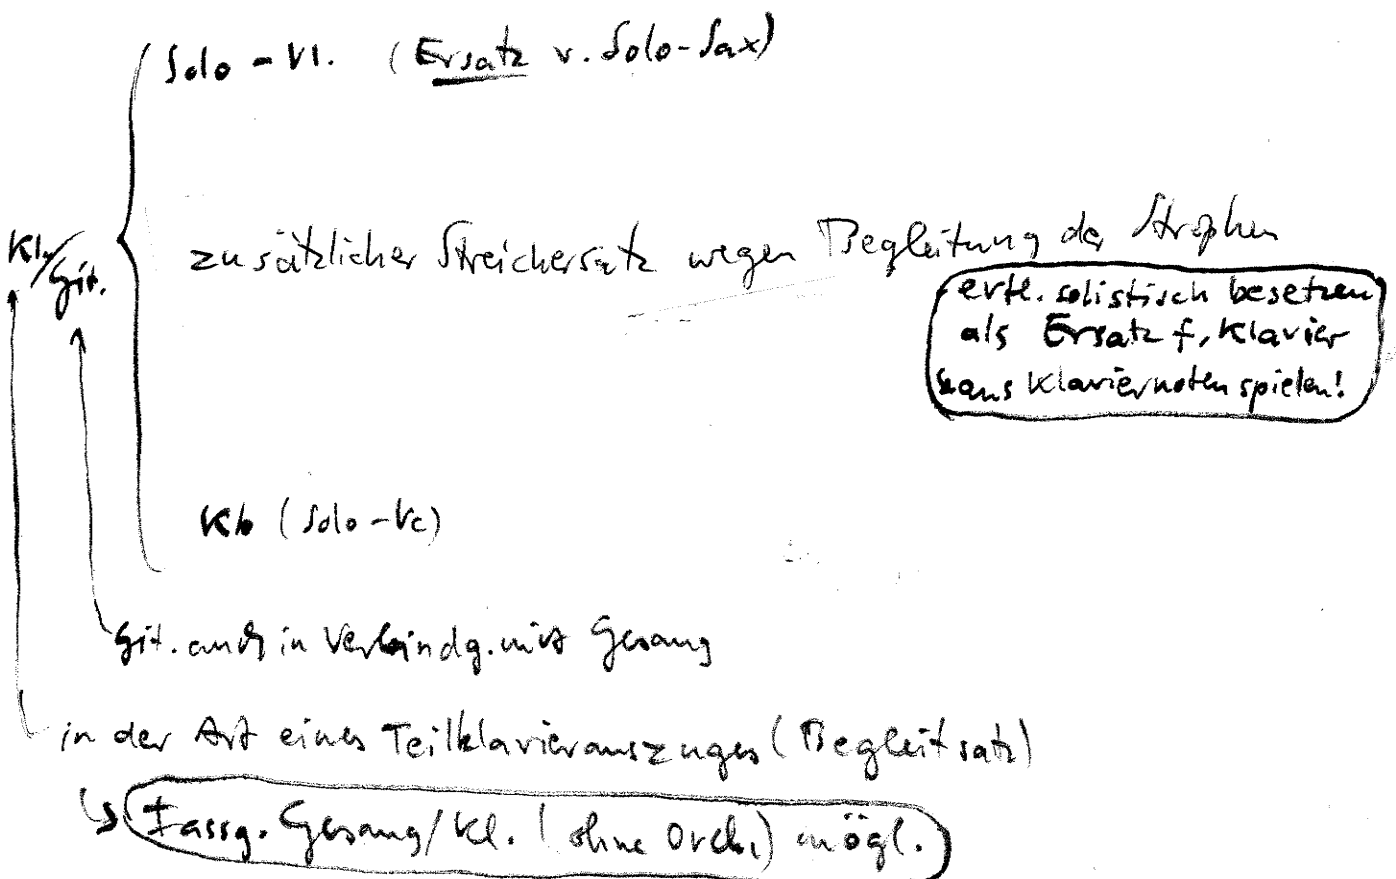 Solo - Vl. (Ersatz v. Solo-Sax)
Kl./Git.
zusätzlicher Streichersatz wegen Begleitung der Strophen
evtl. solistisch besetzen
als Ersatz f. Klavier
aus Klaviernoten spielen!
Kb (Solo-Vc)
Git. auch in Verbindg. mit Gesang
in der Art eines Teilklavierauszuges (Begleitsatz)
↳ Fassg. Gesang/Kl. (ohne Orch.) mögl.